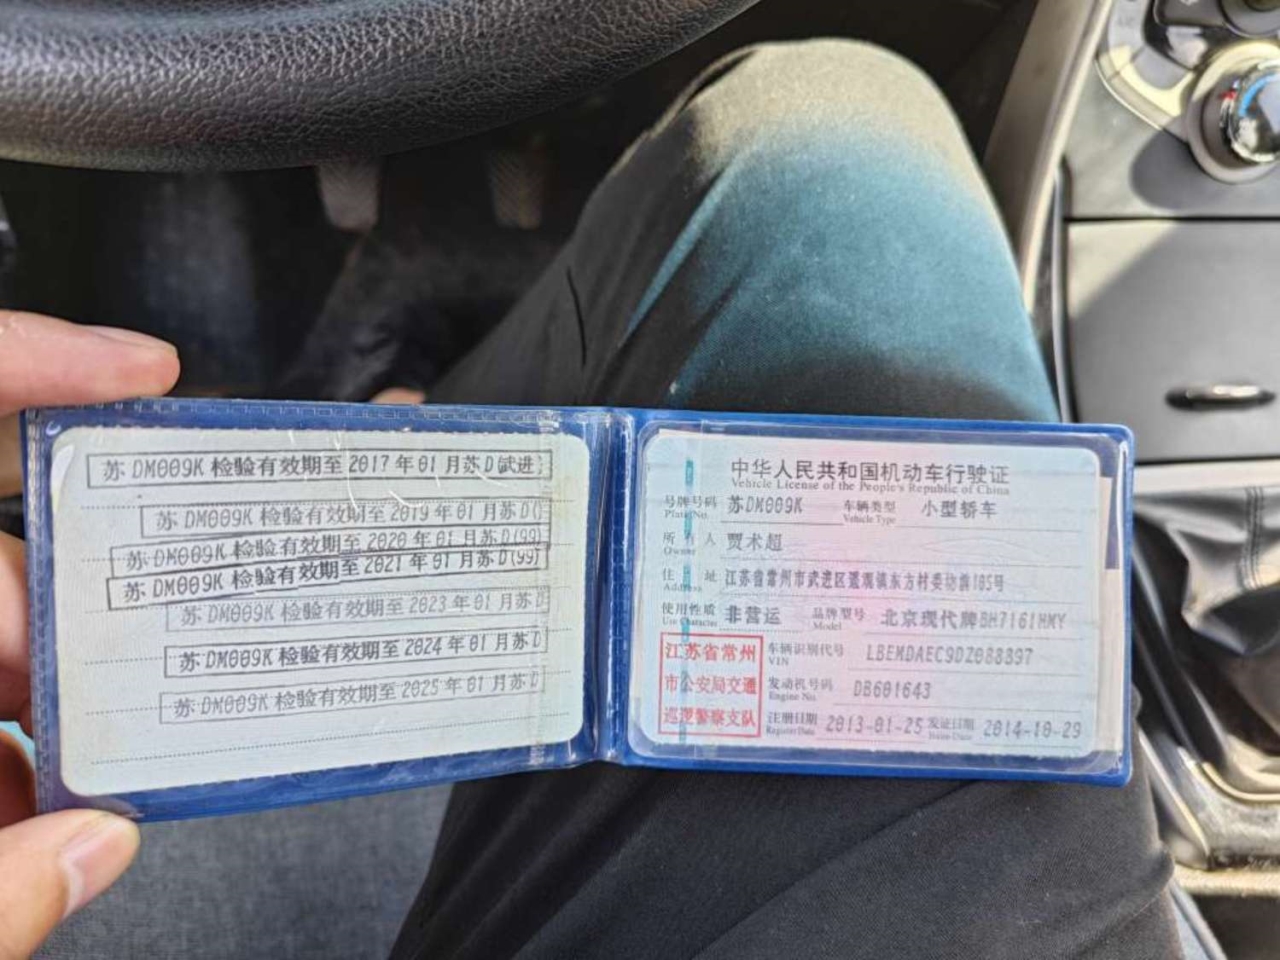 苏DM009K检验有效期至2017年01月苏D(武进)
苏DM009K检验有效期至2019年01月苏D()
苏DM009K检验有效期至2020年01月苏D(99)
苏DM009K检验有效期至2021年01月苏D(99)
苏DM009K检验有效期至2023年01月苏D
苏DM009K检验有效期至2024年01月苏D
苏DM009K检验有效期至2025年01月苏D
中华人民共和国机动车行驶证
Vehicle License of the People's Republic of China
号牌号码 苏DM009K 车辆类型 小型轿车
Plate No. Vehicle Type
所有人 贾术超
Owner
住址 江苏省常州市武进区遥观镇东方村委幼薛105号
Address
使用性质 非营运 品牌型号 北京现代牌BH7161HMY
Use Character Model
江苏省常州
市公安局交通
巡逻警察支队
车辆识别代号 LBEMDAEC9DZ088897
VIN
发动机号码 DB601643
Engine No.
注册日期 2013-01-25 发证日期 2014-10-29
Register Date Issue Date